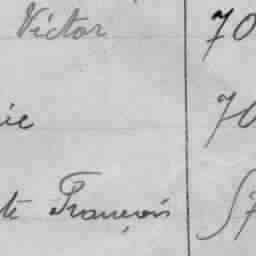 Victor 70
ie 70
te François 57